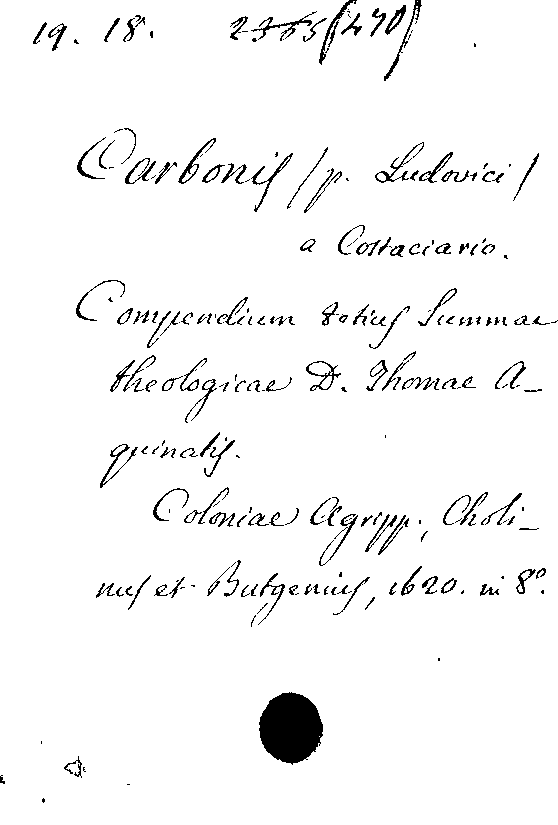 19. 18. 2365 (470)
Carbonis / p. Ludovici /
a Costaciario.
Compendium totius Summae
theologicae D. Thomae A-
quinatis.
Coloniae Agripp., Choli-
nus et Butgenius, 1620. in 8º.